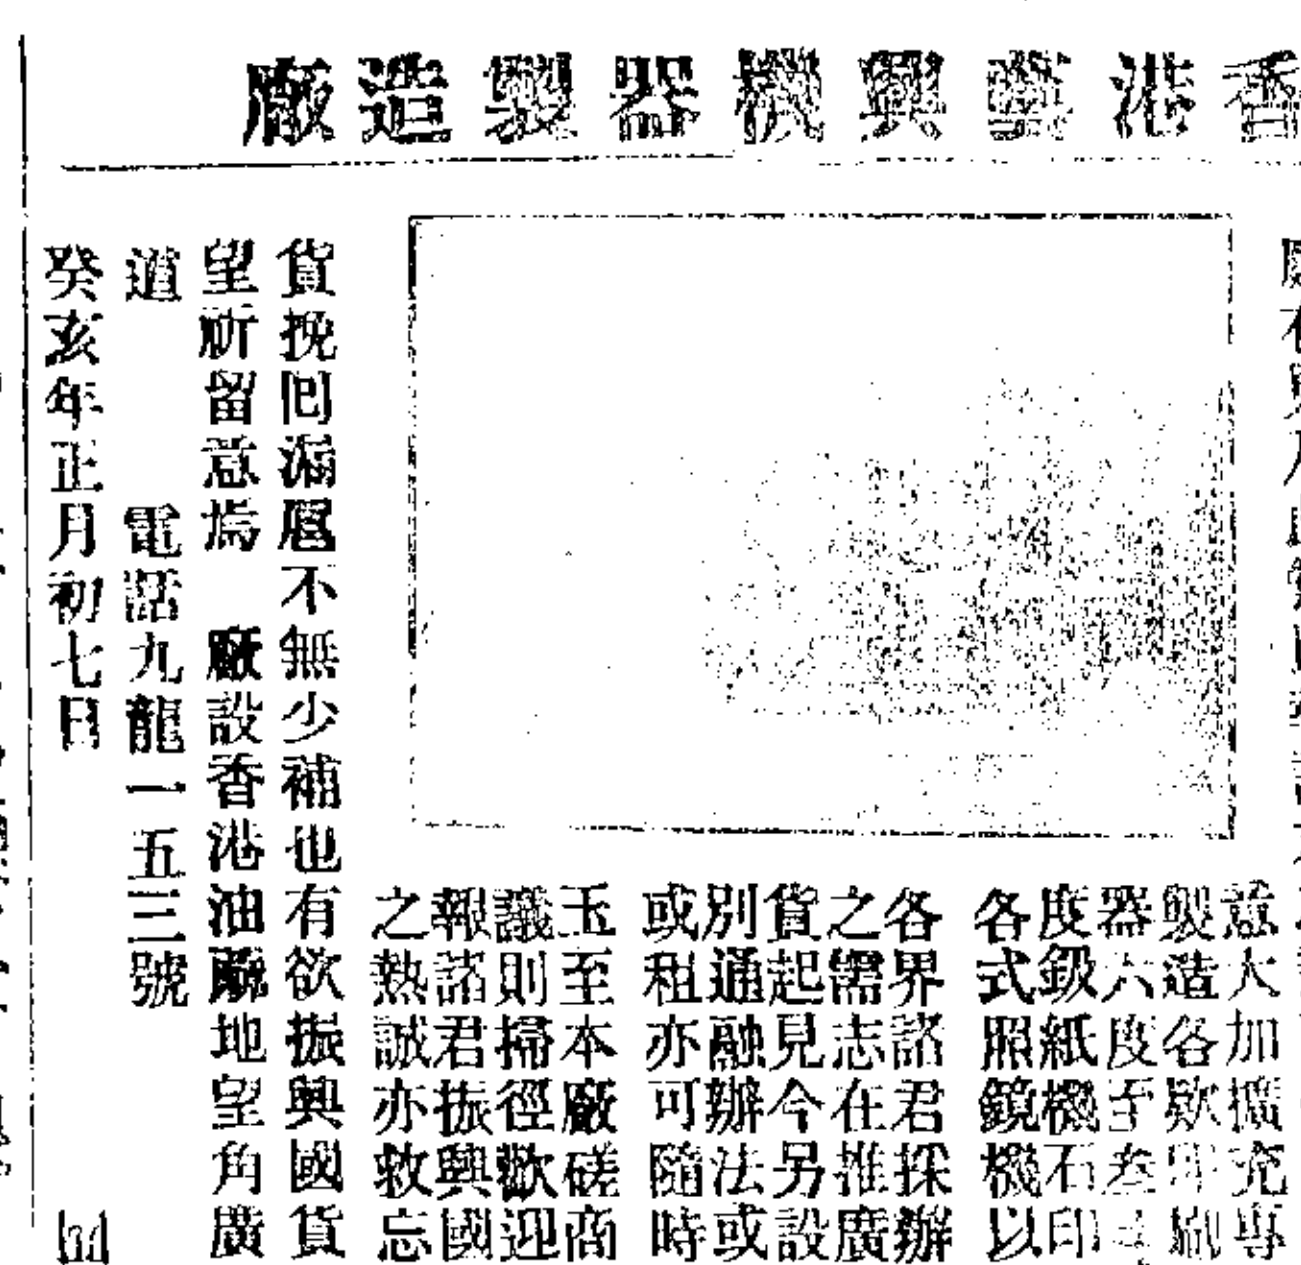 香港藝興機器製造廠
意大加擴充專
製造各欵印刷
器六度至叁
度鈒紙機石印
各式照鏡機以
各界諸君採辦
之需志在推廣
貨起見今另設
別通融辦法或
或租亦可隨時
玉至本廠磋商
議則掃徑歡迎
報諸君振興國
之熱誠亦救忘
貨挽回漏巵不無少補也有欲振興國貨
望祈留意焉 廠設香港油蔴地望角廣
道 電話九龍一五三號
癸亥年正月初七日